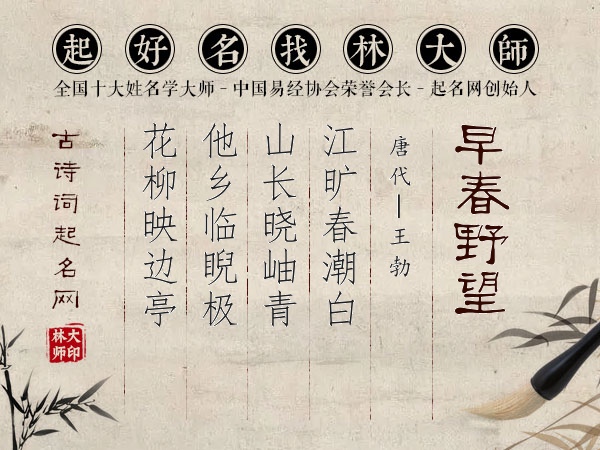 起好名找林大師
全国十大姓名学大师-中国易经协会荣誉会长-起名网创始人
早春野望
唐代—王勃
江旷春潮白
山长晓岫青
他乡临睨极
花柳映边亭
古诗词起名网
大师印林